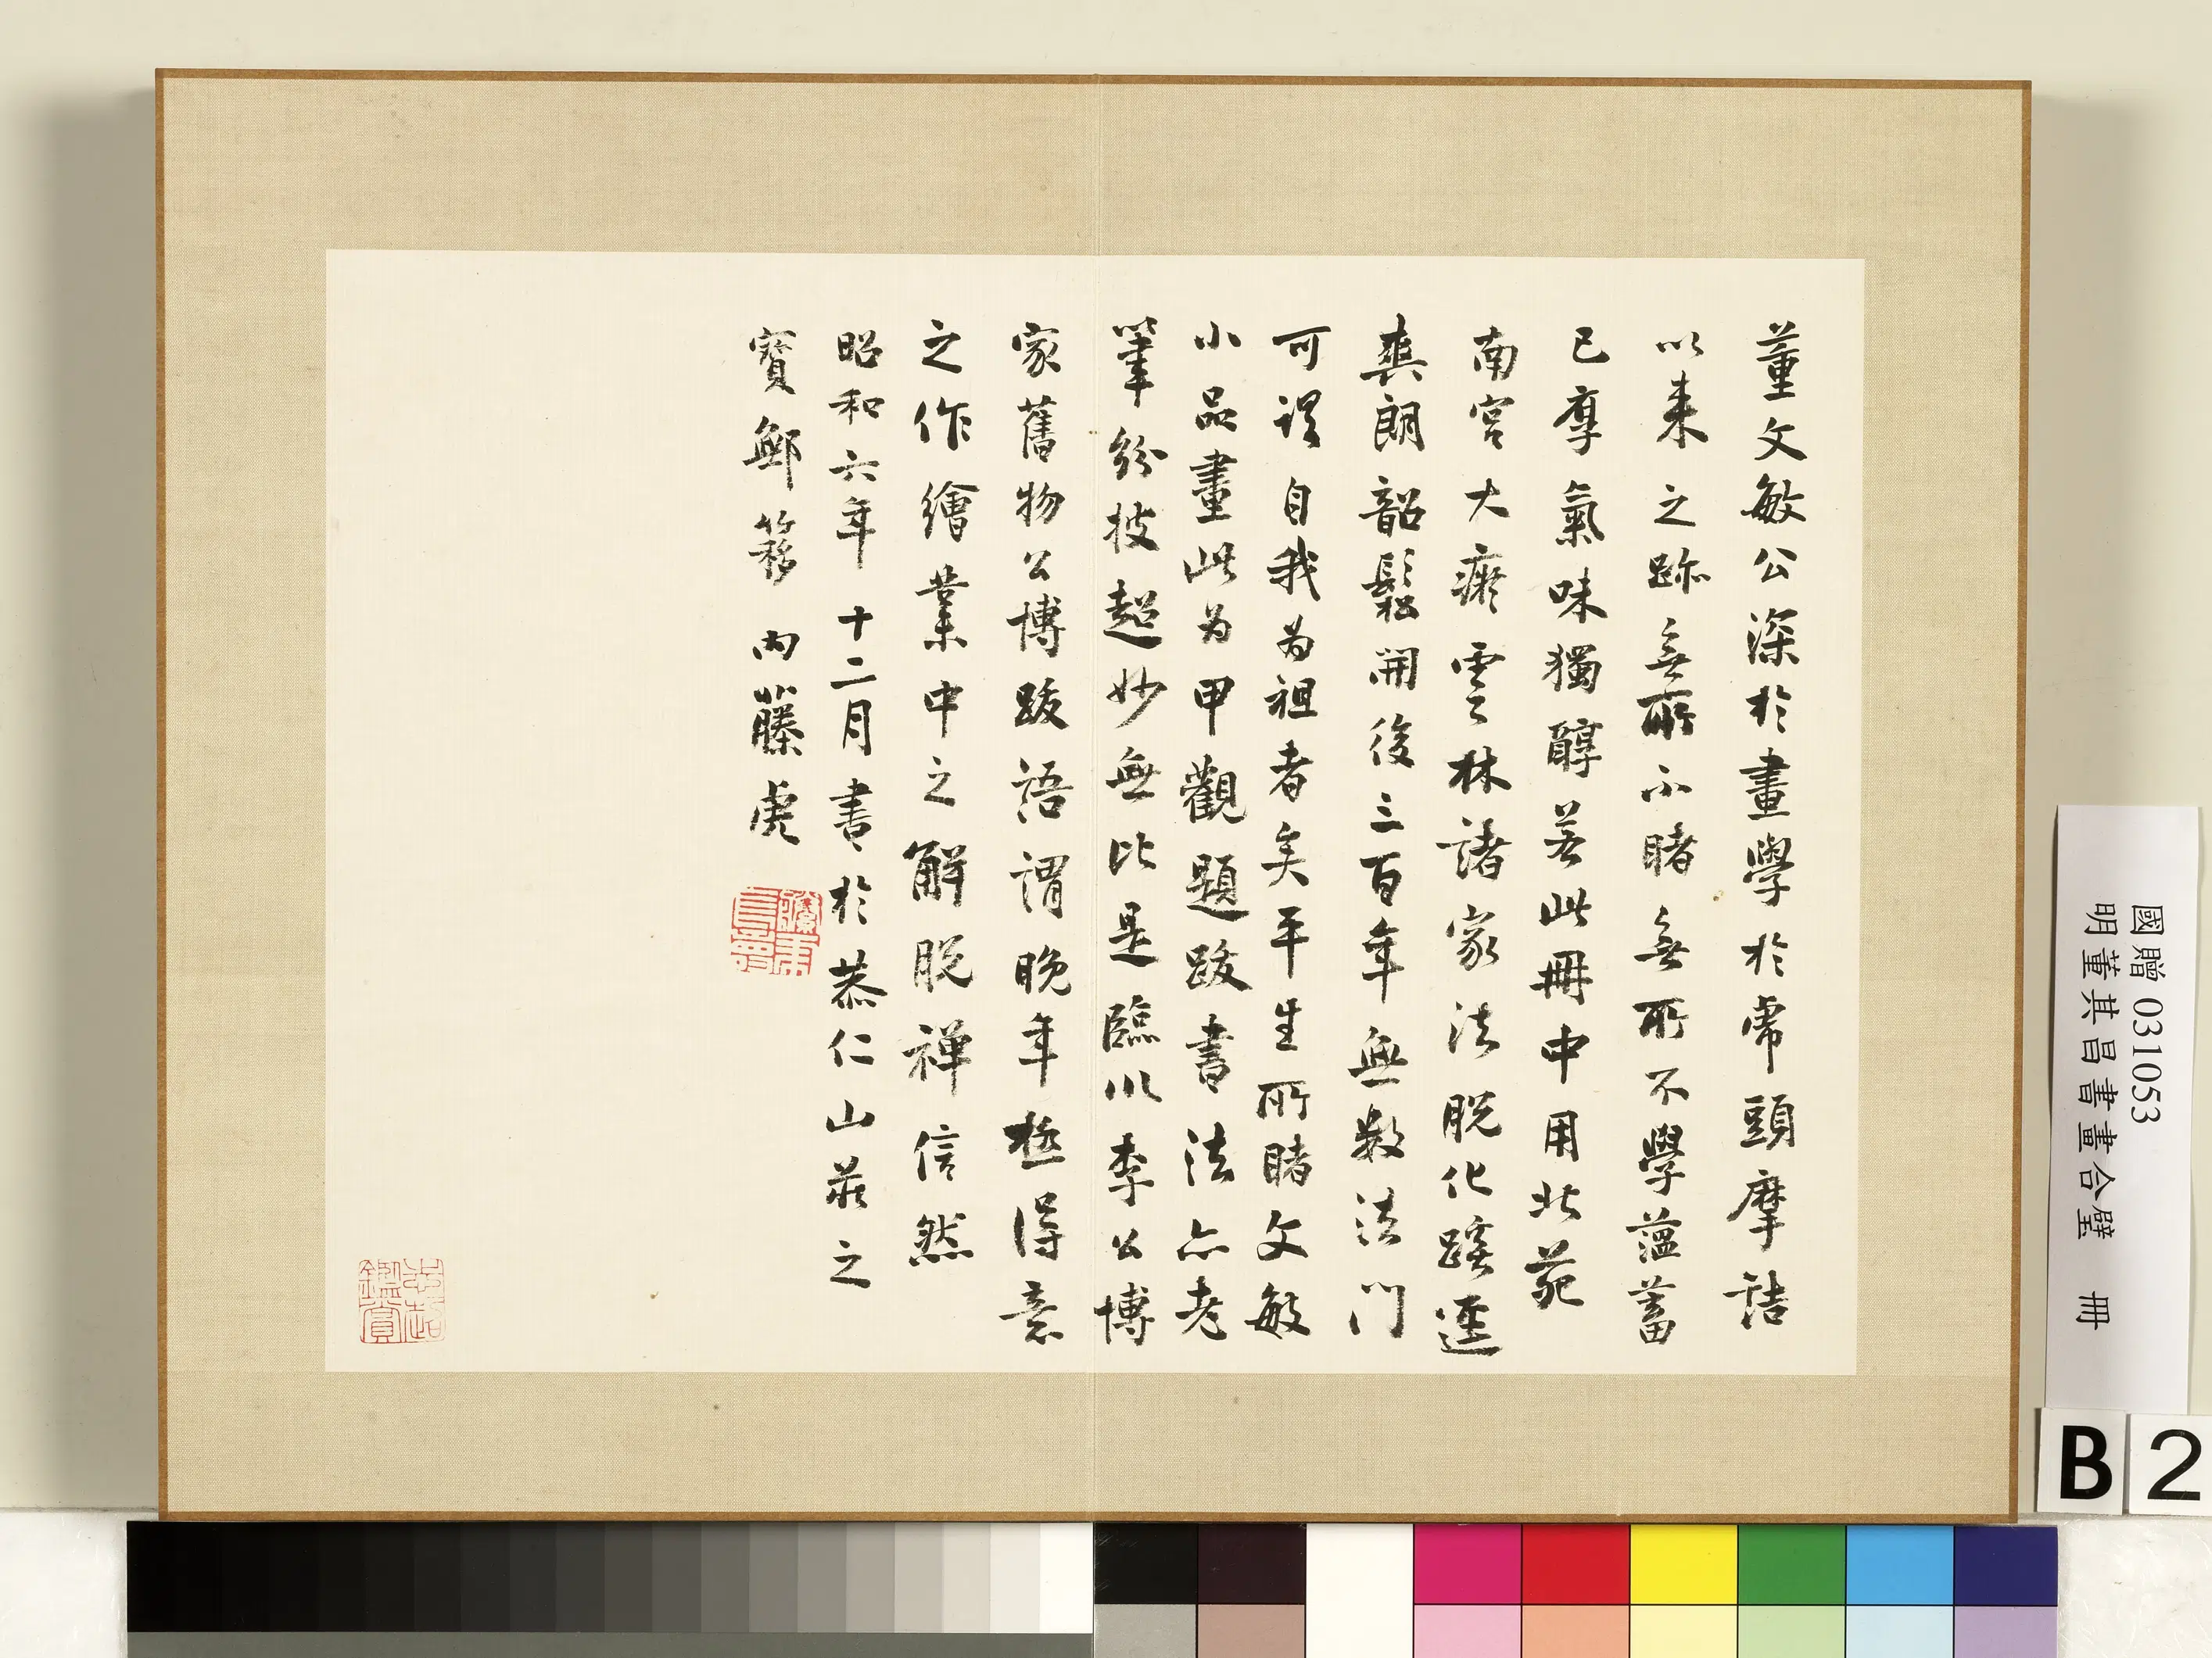 董文敏公深於畫學於虎頭摩詰
以来之跡無所不睹無所不學薀蓄
已厚氣味獨醇若此冊中用北苑
南宮大癡雲林諸家法脫化蹊逕
爽朗韶鬆開後三百年無數法門
可謂自我为祖者矣平生所睹文敏
小品畫此为甲觀題跋書法亦老
筆紛披超妙無比是臨川李公博
家舊物公博跋語謂晚年極得意
之作繪業中之解脫禪信然
昭和六年 十二月書於恭仁山莊之
寶鄦簃 內藤虎
鑑賞
國贈 031053
明董其昌書畫合璧 冊
B 2